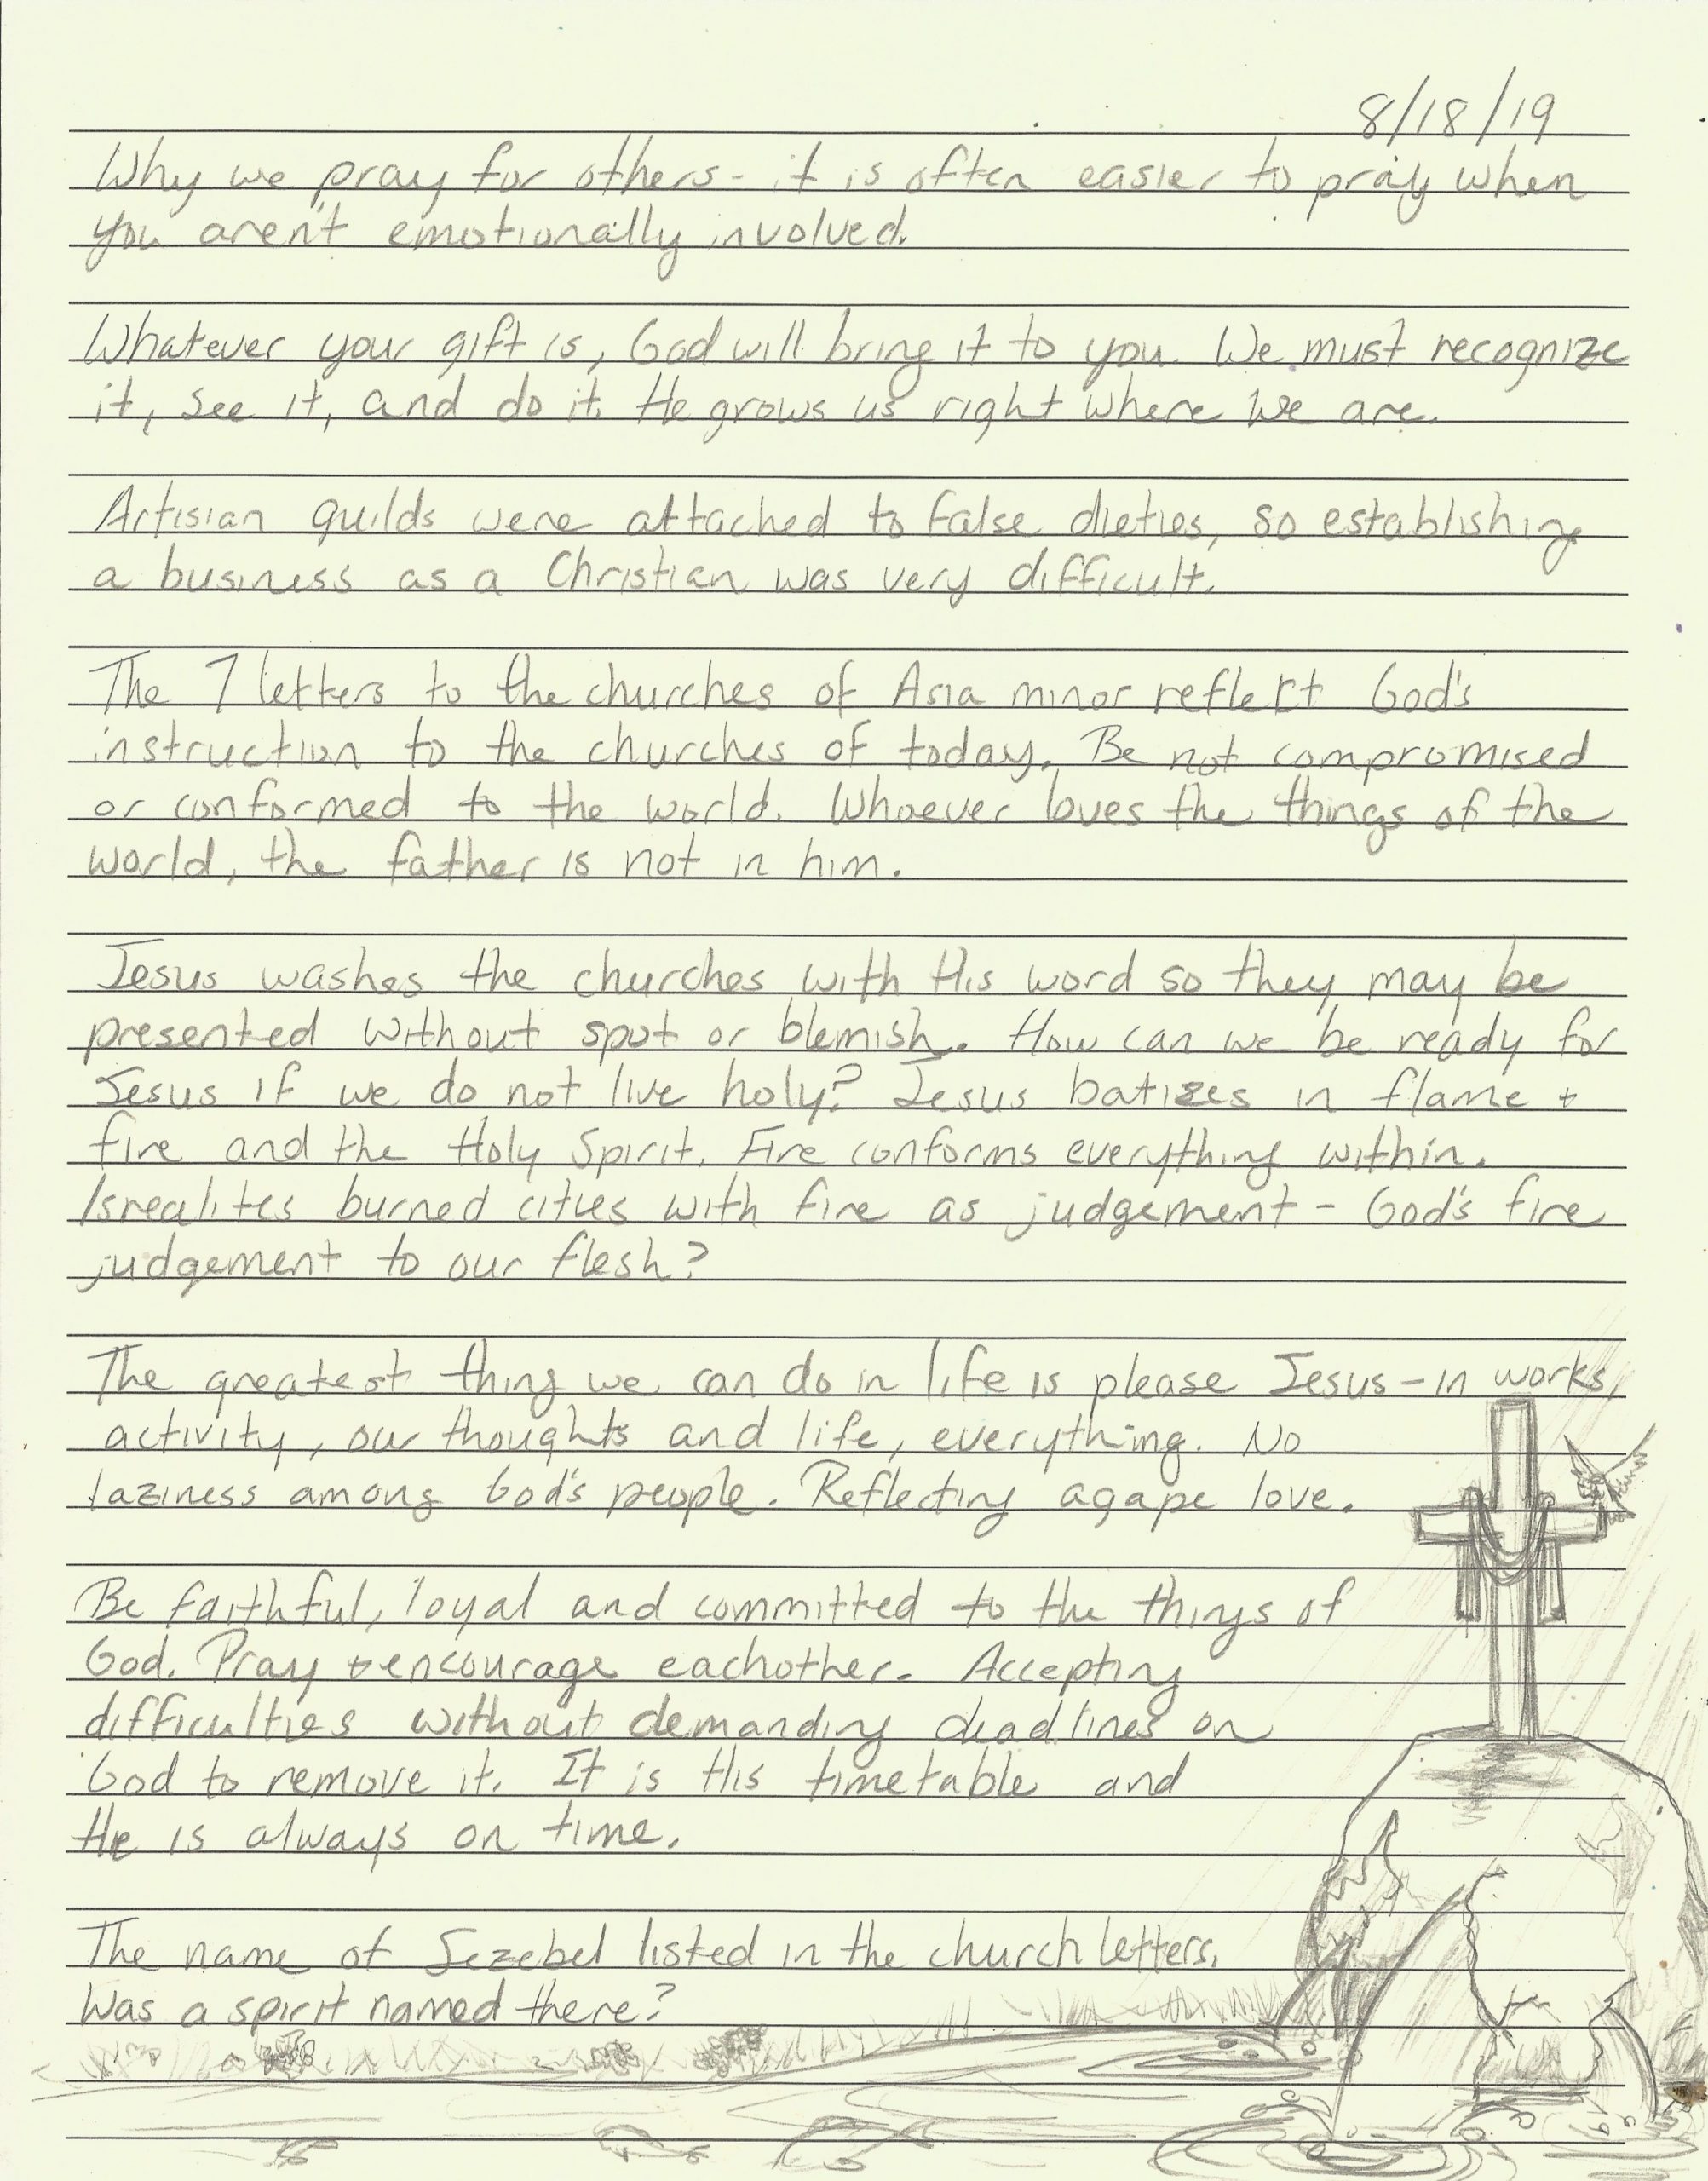 8/18/19
Why we pray for others - it is often easier to pray when
you aren't emotionally involved.
Whatever your gift is, God will bring it to you. We must recognize
it, see it, and do it. He grows us right where we are.
Artisian guilds were attached to false dieties, so establishing
a business as a Christian was very difficult.
The 7 letters to the churches of Asia minor reflect God's
instruction to the churches of today. Be not compromised
or conformed to the world. Whoever loves the things of the
world, the father is not in him.
Jesus washes the churches with His word so they may be
presented without spot or blemish. How can we be ready for
Jesus if we do not live holy? Jesus batizes in flame +
fire and the Holy Spirit. Fire conforms everything within.
Isrealites burned cities with fire as judgement - God's fire
judgement to our flesh?
The greatest thing we can do in life is please Jesus - in works,
activity, our thoughts and life, everything. No
laziness among God's people. Reflecting agape love.
Be faithful, loyal and committed to the things of
God. Pray + encourage eachother. Accepting
difficulties without demanding deadlines on
God to remove it. It is His timetable and
He is always on time.
The name of Jezebel listed in the church letters.
Was a spirit named there?